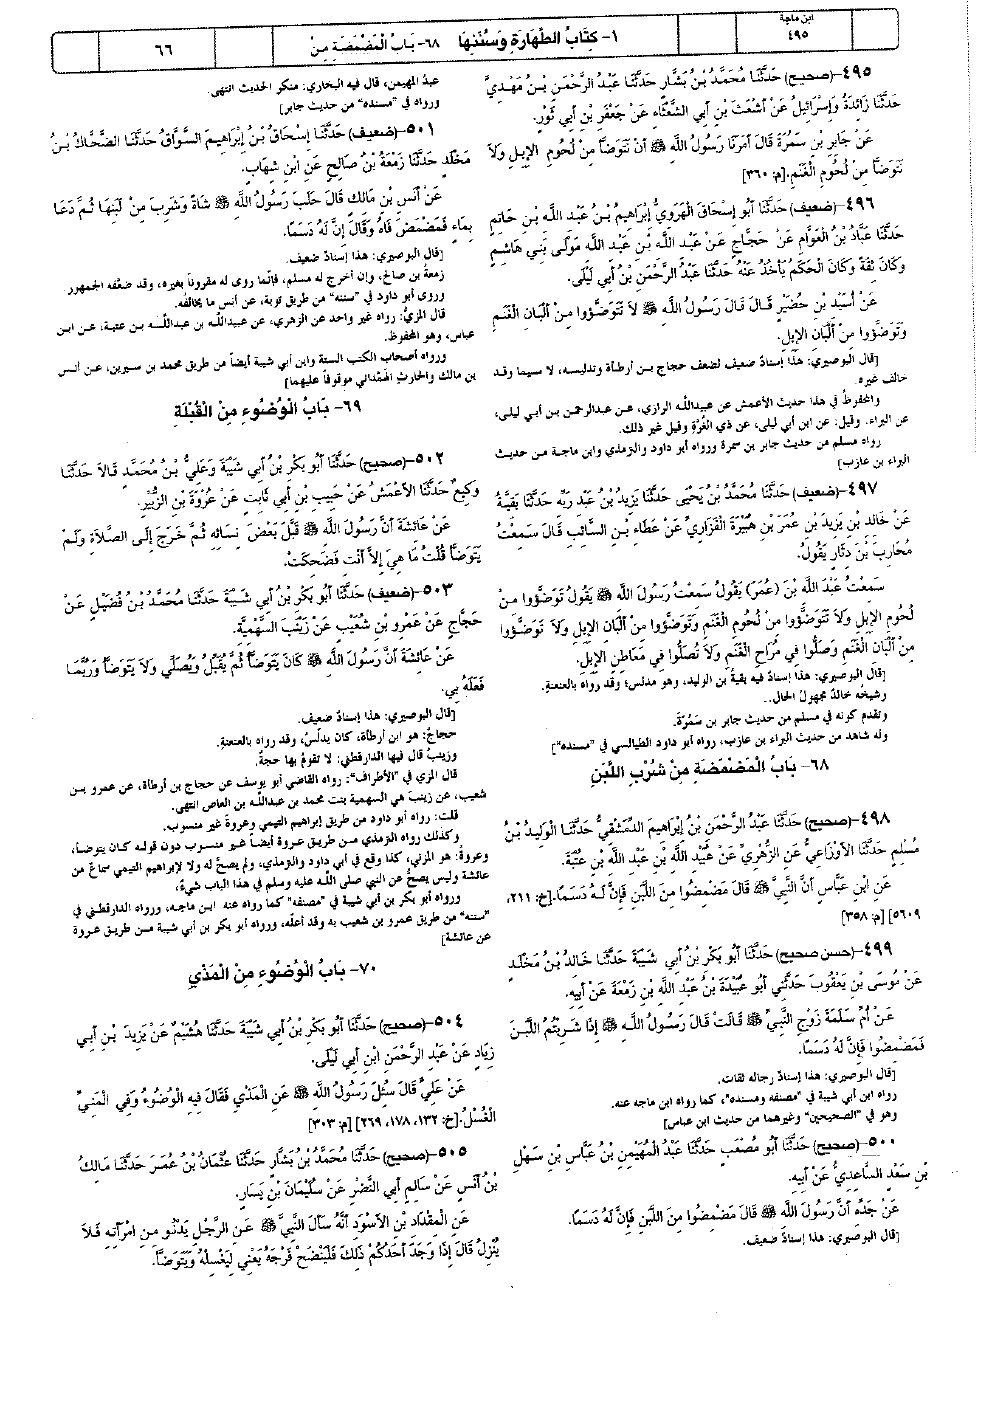 ابن ماجة
٤٩٥
١- كِتَابُ الطَّهَارَةِ وَسُنَنِهَا
٦٨- بَابُ الْمَضْمَضَةِ مِنْ
٦٦
٤٩٥-(صحيح) حَدَّثَنَا مُحَمَّدُ بْنُ بَشَّارٍ حَدَّثَنَا عَبْدُ الرَّحْمَنِ بْنُ مَهْدِيٍّ
حَدَّثَنَا زَائِدَةُ وَإِسْرَائِيلُ عَنْ أَشْعَثَ بْنِ أَبِي الشَّعْثَاءِ عَنْ جَعْفَرِ بْنِ أَبِي ثَوْرٍ.
عَنْ جَابِرِ بْنِ سَمُرَةَ قَالَ أَمَرَنَا رَسُولُ اللَّهِ ﷺ أَنْ نَتَوَضَّأَ مِنْ لُحُومِ الإِبِلِ وَلاَ
نَتَوَضَّأَ مِنْ لُحُومِ الْغَنَمِ.[م: ٣٦٠]
٤٩٦-(ضعيف) حَدَّثَنَا أَبُو إِسْحَاقَ الْهَرَوِيُّ إِبْرَاهِيمُ بْنُ عَبْدِ اللَّهِ بْنِ حَاتِمٍ
حَدَّثَنَا عَبَّادُ بْنُ الْعَوَّامِ عَنْ حَجَّاجٍ عَنْ عَبْدِ اللَّهِ بْنِ عَبْدِ اللَّهِ مَوْلَى بَنِي هَاشِمٍ
وَكَانَ ثِقَةً وَكَانَ الْحَكَمُ يَأْخُذُ عَنْهُ حَدَّثَنَا عَبْدُ الرَّحْمَنِ بْنُ أَبِي لَيْلَى.
عَنْ أُسَيْدِ بْنِ حُضَيْرٍ قَالَ قَالَ رَسُولُ اللَّهِ ﷺ لاَ تَتَوَضَّؤُوا مِنْ أَلْبَانِ الْغَنَمِ
وَتَوَضَّؤُوا مِنْ أَلْبَانِ الإِبِلِ.
[قال البوصيري: هذا إسنادٌ ضعيف لضعف حجاج بن أرطأة وتدليسه، لا سيما وقد
خالف غيره.
والمحفوظ في هذا حديث الأعمش عن عبدالله الرازي، عن عبدالرحمن بن أبي ليلى،
عن البراء. وقيل: عن ابن أبي ليلى، عن ذي الغُرَّة وقيل غير ذلك.
رواه مسلم من حديث جابر بن سمرة ورواه أبو داود والترمذي وابن ماجة من حديث
البراء بن عازب]
٤٩٧-(ضعيف) حَدَّثَنَا مُحَمَّدُ بْنُ يَحْيَى حَدَّثَنَا يَزِيدُ بْنُ عَبْدِ رَبِّهِ حَدَّثَنَا بَقِيَّةُ
عَنْ خَالِدِ بْنِ يَزِيدَ بْنِ عُمَرَ بْنِ هُبَيْرَةَ الْفَزَارِيِّ عَنْ عَطَاءِ بْنِ السَّائِبِ قَالَ سَمِعْتُ
مُحَارِبَ بْنَ دِثَارٍ يَقُولُ.
سَمِعْتُ عَبْدَ اللَّهِ بْنَ (عُمَرَ) يَقُولُ سَمِعْتُ رَسُولَ اللَّهِ ﷺ يَقُولُ تَوَضَّؤُوا مِنْ
لُحُومِ الإِبِلِ وَلاَ تَتَوَضَّؤُوا مِنْ لُحُومِ الْغَنَمِ وَتَوَضَّؤُوا مِنْ أَلْبَانِ الإِبِلِ وَلاَ تَوَضَّؤُوا
مِنْ أَلْبَانِ الْغَنَمِ وَصَلُّوا فِي مُرَاحِ الْغَنَمِ وَلاَ تُصَلُّوا فِي مَعَاطِنِ الإِبِلِ.
[قال البوصيري: هذا إسنادٌ فيه بقيةُ بن الوليد، وهو مدلس؛ وقد رواه بالعنعنةِ.
وشيخُه خالدٌ مجهولُ الحال..
وتقدم كونه في مسلم من حديث جابر بن سَمُرَةَ.
وله شاهد من حديث البراء بن عازب، رواه أبو داود الطيالسي في "مسنده"]
٦٨- بَابُ الْمَضْمَضَةِ مِنْ شُرْبِ اللَّبَنِ
٤٩٨-(صحيح) حَدَّثَنَا عَبْدُ الرَّحْمَنِ بْنُ إِبْرَاهِيمَ الدِّمَشْقِيُّ حَدَّثَنَا الْوَلِيدُ بْنُ
مُسْلِمٍ حَدَّثَنَا الأَوْزَاعِيُّ عَنِ الزُّهْرِيِّ عَنْ عُبَيْدِ اللَّهِ بْنِ عَبْدِ اللَّهِ بْنِ عُتْبَةَ.
عَنِ ابْنِ عَبَّاسٍ أَنَّ النَّبِيَّ ﷺ قَالَ مَضْمِضُوا مِنَ اللَّبَنِ فَإِنَّ لَهُ دَسَمًا.[خ: ٢١١،
٥٦٠٩] [م: ٣٥٨]
٤٩٩-(حسن صحيح) حَدَّثَنَا أَبُو بَكْرِ بْنُ أَبِي شَيْبَةَ حَدَّثَنَا خَالِدُ بْنُ مَخْلَدٍ
عَنْ مُوسَى بْنِ يَعْقُوبَ حَدَّثَنِي أَبُو عُبَيْدَةَ بْنُ عَبْدِ اللَّهِ بْنِ زَمْعَةَ عَنْ أَبِيهِ.
عَنْ أُمِّ سَلَمَةَ زَوْجِ النَّبِيِّ ﷺ قَالَتْ قَالَ رَسُولُ اللَّهِ ﷺ إِذَا شَرِبْتُمُ اللَّبَنَ
فَمَضْمِضُوا فَإِنَّ لَهُ دَسَمًا.
[قال البوصيري: هذا إسنادٌ رجاله ثقات.
رواه ابن أبي شيبة في "مصنفه ومسنده"، كما رواه ابن ماجه عنه.
وهو في "الصحيحين" وغيرهما من حديث ابن عباس]
٥٠٠-(صحيح) حَدَّثَنَا أَبُو مُصْعَبٍ حَدَّثَنَا عَبْدُ الْمُهَيْمِنِ بْنُ عَبَّاسِ بْنِ سَهْلِ
بْنِ سَعْدٍ السَّاعِدِيُّ عَنْ أَبِيهِ.
عَنْ جَدِّهِ أَنَّ رَسُولَ اللَّهِ ﷺ قَالَ مَضْمِضُوا مِنَ اللَّبَنِ فَإِنَّ لَهُ دَسَمًا.
[قال البوصيري: هذا إسنادٌ ضعيف.
عبدُ المهيمن، قال فيه البخاري: منكر الحديث انتهى.
ورواه في "مسنده" من حديث جابر]
٥٠١-(ضعيف) حَدَّثَنَا إِسْحَاقُ بْنُ إِبْرَاهِيمَ السَّوَّاقُ حَدَّثَنَا الضَّحَّاكُ بْنُ
مَخْلَدٍ حَدَّثَنَا زَمْعَةُ بْنُ صَالِحٍ عَنِ ابْنِ شِهَابٍ.
عَنْ أَنَسِ بْنِ مَالِكٍ قَالَ حَلَبَ رَسُولُ اللَّهِ ﷺ شَاةً وَشَرِبَ مِنْ لَبَنِهَا ثُمَّ دَعَا
بِمَاءٍ فَمَضْمَضَ فَاهُ وَقَالَ إِنَّ لَهُ دَسَمًا.
[قال البوصيري: هذا إسنادٌ ضعيف.
زمعةُ بن صالح، وإن أخرج له مسلم، فإنّما روى له مقروناً بغيره، وقد ضعَّفه الجمهور
وروى أبو داود في "سننه" من طريق توبة، عن أنس ما يخالفُه.
قال المزيُّ: رواه غير واحد عن الزهري، عن عبيدالله بن عبدالله بن عتبة، عن ابن
عباس، وهو المحفوظ.
ورواه أصحاب الكتب الستة وابن أبي شيبة أيضاً من طريق محمد بن سيرين، عن أنس
بن مالك والحارثِ الهمْداني موقوفاً عليهما]
٦٩- بَابُ الْوُضُوءِ مِنَ الْقُبْلَةِ
٥٠٢-(صحيح) حَدَّثَنَا أَبُو بَكْرِ بْنُ أَبِي شَيْبَةَ وَعَلِيُّ بْنُ مُحَمَّدٍ قَالاَ حَدَّثَنَا
وَكِيعٌ حَدَّثَنَا الأَعْمَشُ عَنْ حَبِيبِ بْنِ أَبِي ثَابِتٍ عَنْ عُرْوَةَ بْنِ الزُّبَيْرِ.
عَنْ عَائِشَةَ أَنَّ رَسُولَ اللَّهِ ﷺ قَبَّلَ بَعْضَ نِسَائِهِ ثُمَّ خَرَجَ إِلَى الصَّلاَةِ وَلَمْ
يَتَوَضَّأْ قُلْتُ مَا هِيَ إِلاَّ أَنْتِ فَضَحِكَتْ.
٥٠٣-(ضعيف) حَدَّثَنَا أَبُو بَكْرِ بْنُ أَبِي شَيْبَةَ حَدَّثَنَا مُحَمَّدُ بْنُ فُضَيْلٍ عَنْ
حَجَّاجٍ عَنْ عَمْرِو بْنِ شُعَيْبٍ عَنْ زَيْنَبَ السَّهْمِيَّةِ.
عَنْ عَائِشَةَ أَنَّ رَسُولَ اللَّهِ ﷺ كَانَ يَتَوَضَّأُ ثُمَّ يُقَبِّلُ وَيُصَلِّي وَلاَ يَتَوَضَّأُ وَرُبَّمَا
فَعَلَهُ بِي.
[قال البوصيري: هذا إسنادٌ ضعيف.
حجاجٌ: هو ابن أرطأة، كان يدلّسُ، وقد رواه بالعنعنةِ.
وزينبُ قال فيها الدارقطني: لا تقومُ بها حجةٌ.
قال المزي في "الأطراف": رواه القاضي أبو يوسف عن حجاج بن أرطأة، عن عمرو بن
شعيب، عن زينب هي السهمية بنت محمد بن عبدالله بن العاص انتهى.
قلت: رواه أبو داود من طريق إبراهيم التيمي وعروة غير منسوب.
وكذلك رواه الترمذي من طريق عروة أيضاً غير منسوب دون قوله كان يتوضأ،
وعروةُ: هو المزني، كذا وقع في أبي داود والترمذي، ولم يصحَّ له ولا لإبراهيم التيمي سماعٌ من
عائشة وليس يصحُّ عن النبي صلى الله عليه وسلم في هذا الباب شيءٌ.
ورواه أبو بكر بن أبي شيبة في "مصنفه" كما رواه عنه ابن ماجه، ورواه الدارقطني في
"سننه" من طريق عمرو بن شعيب به وقد أعلّه، ورواه أبو بكر بن أبي شيبة من طريق عروة
عن عائشة]
٧٠- بَابُ الْوُضُوءِ مِنَ الْمَذْيِ
٥٠٤-(صحيح) حَدَّثَنَا أَبُو بَكْرِ بْنُ أَبِي شَيْبَةَ حَدَّثَنَا هُشَيْمٌ عَنْ يَزِيدَ بْنِ أَبِي
زِيَادٍ عَنْ عَبْدِ الرَّحْمَنِ ابْنِ أَبِي لَيْلَى.
عَنْ عَلِيٍّ قَالَ سُئِلَ رَسُولُ اللَّهِ ﷺ عَنِ الْمَذْيِ فَقَالَ فِيهِ الْوُضُوءُ وَفِي الْمَنِيِّ
الْغُسْلُ.[خ: ١٣٢، ١٧٨، ٢٦٩] [م: ٣٠٣]
٥٠٥-(صحيح) حَدَّثَنَا مُحَمَّدُ بْنُ بَشَّارٍ حَدَّثَنَا عُثْمَانُ بْنُ عُمَرَ حَدَّثَنَا مَالِكُ
بْنُ أَنَسٍ عَنْ سَالِمٍ أَبِي النَّضْرِ عَنْ سُلَيْمَانَ بْنِ يَسَارٍ.
عَنِ الْمِقْدَادِ بْنِ الأَسْوَدِ أَنَّهُ سَأَلَ النَّبِيَّ ﷺ عَنِ الرَّجُلِ يَدْنُو مِنِ امْرَأَتِهِ فَلاَ
يُنْزِلُ قَالَ إِذَا وَجَدَ أَحَدُكُمْ ذَلِكَ فَلْيَنْضَحْ فَرْجَهُ يَعْنِي لِيَغْسِلْهُ وَيَتَوَضَّأْ.